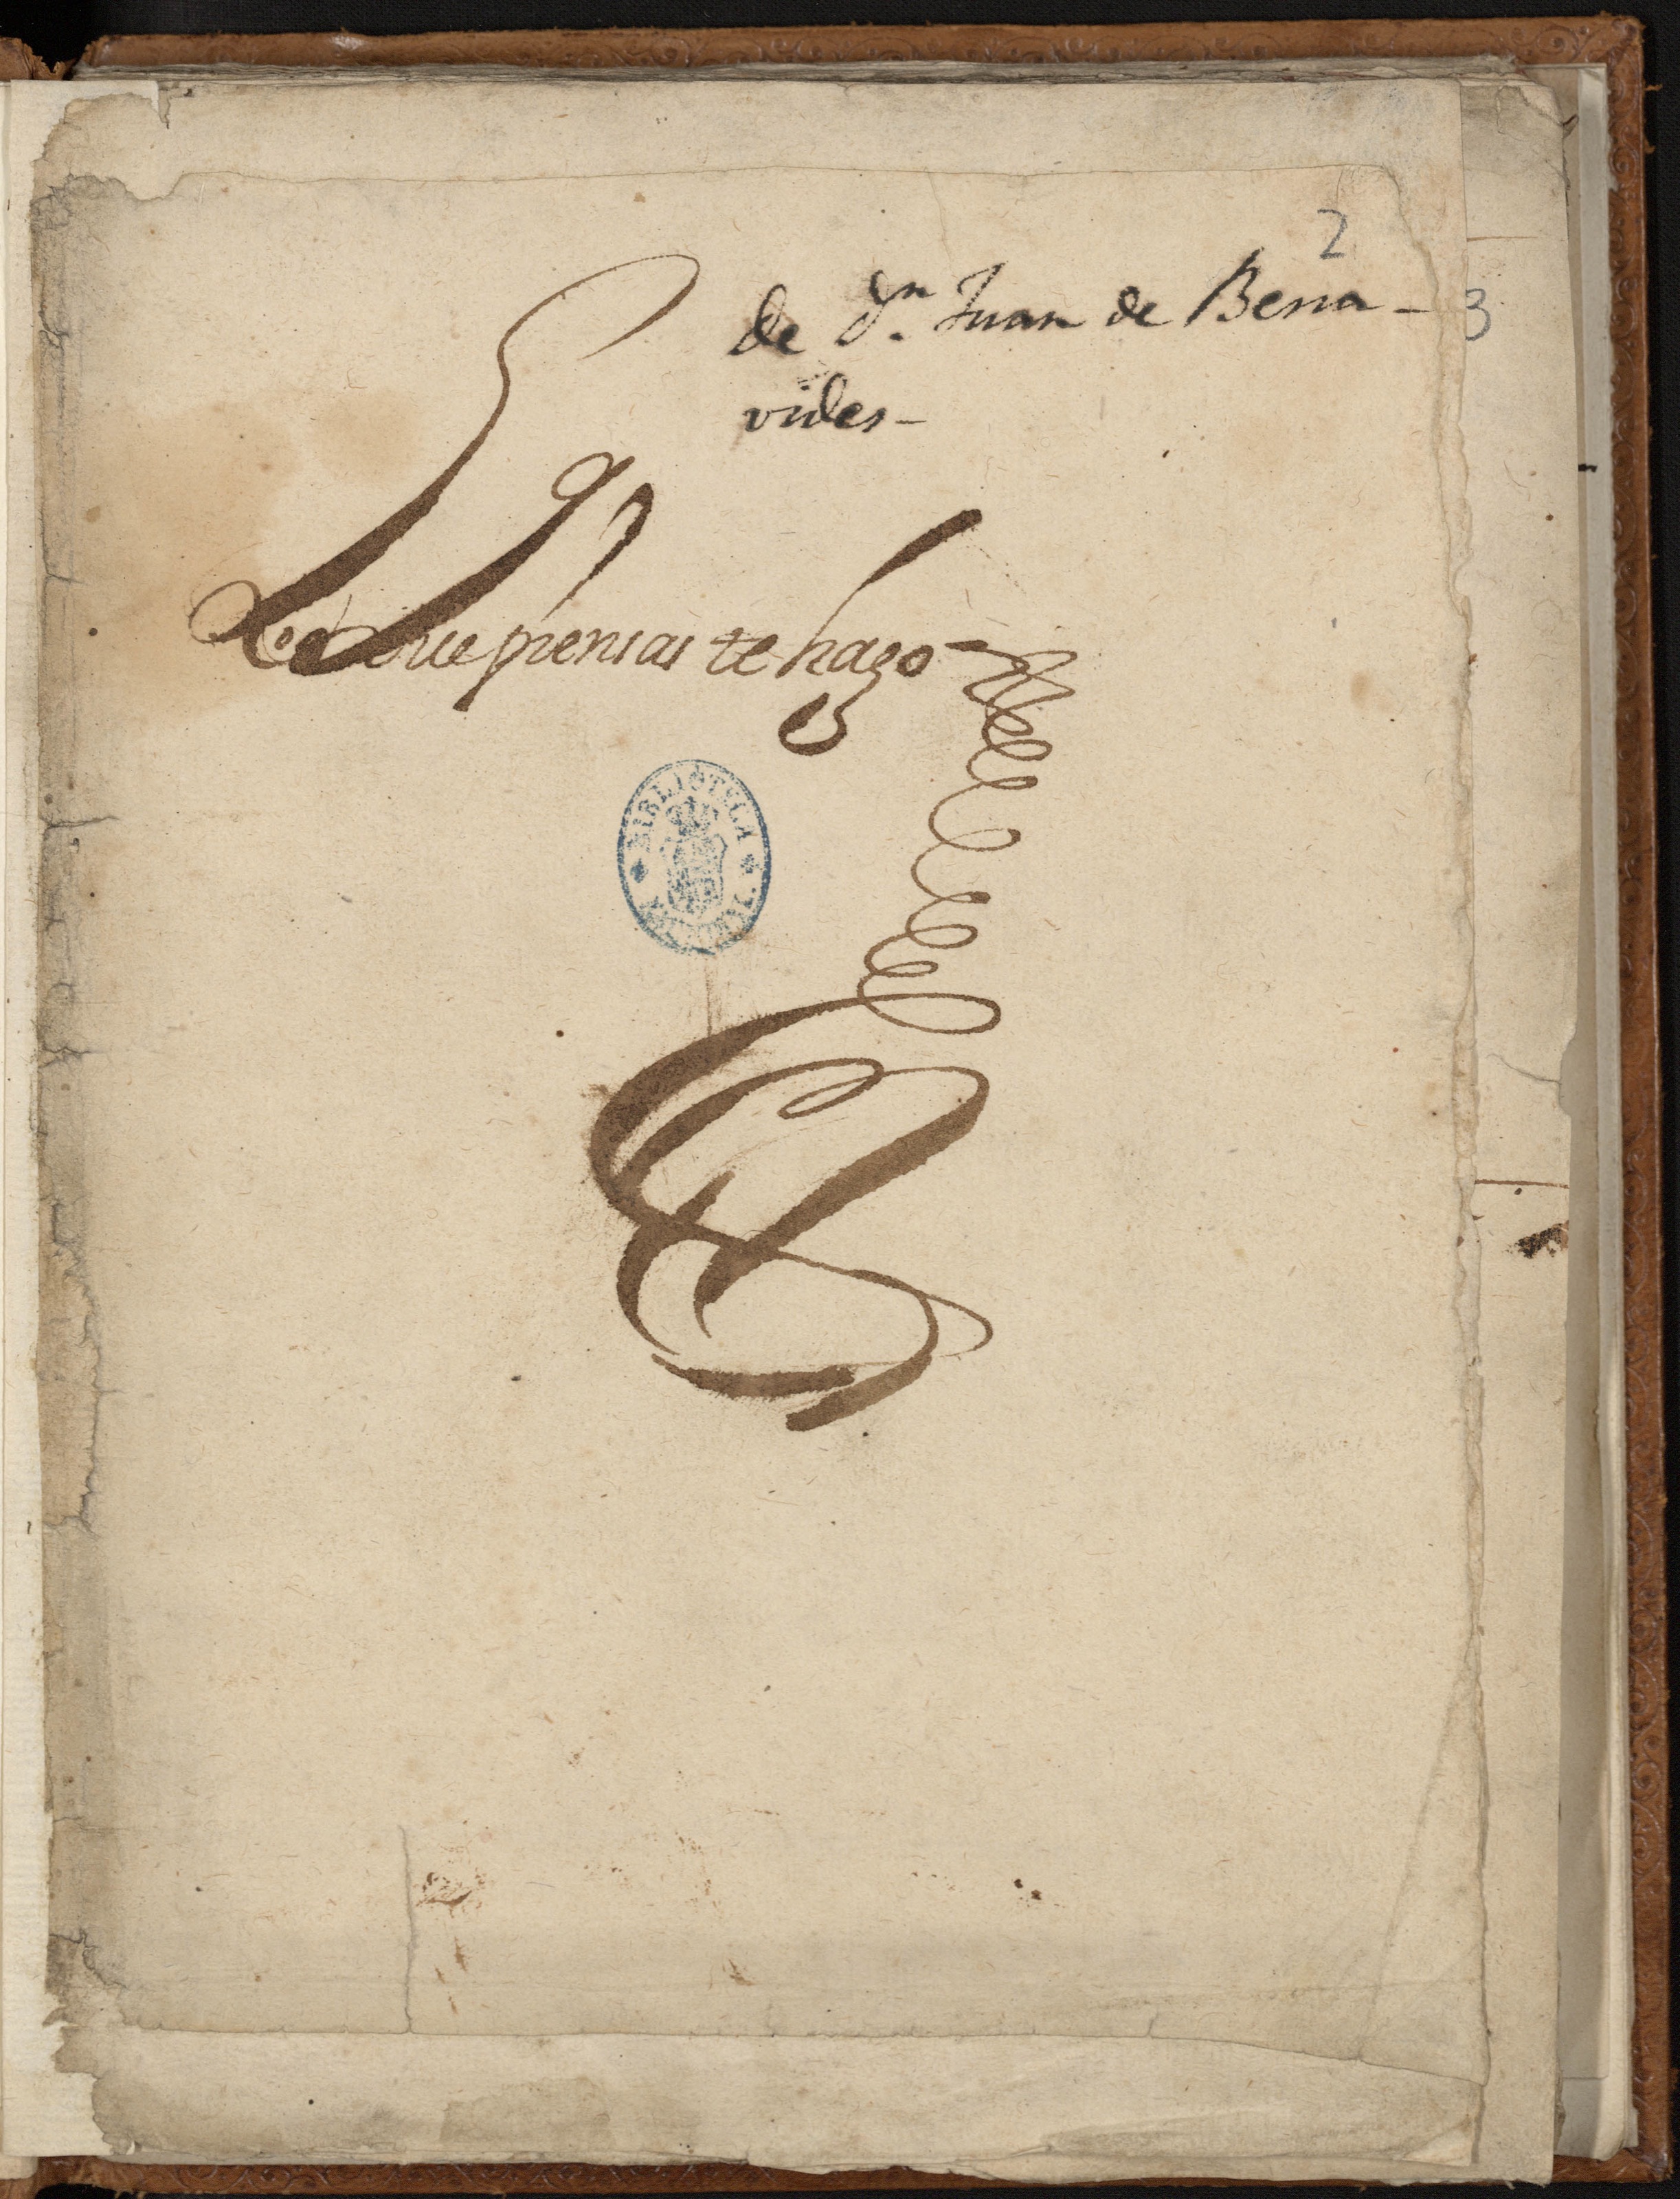 2
de Dn. Juan de Bena-
vides-
3
Lo que piensas te hago
BIBLIOTECA NACIONAL